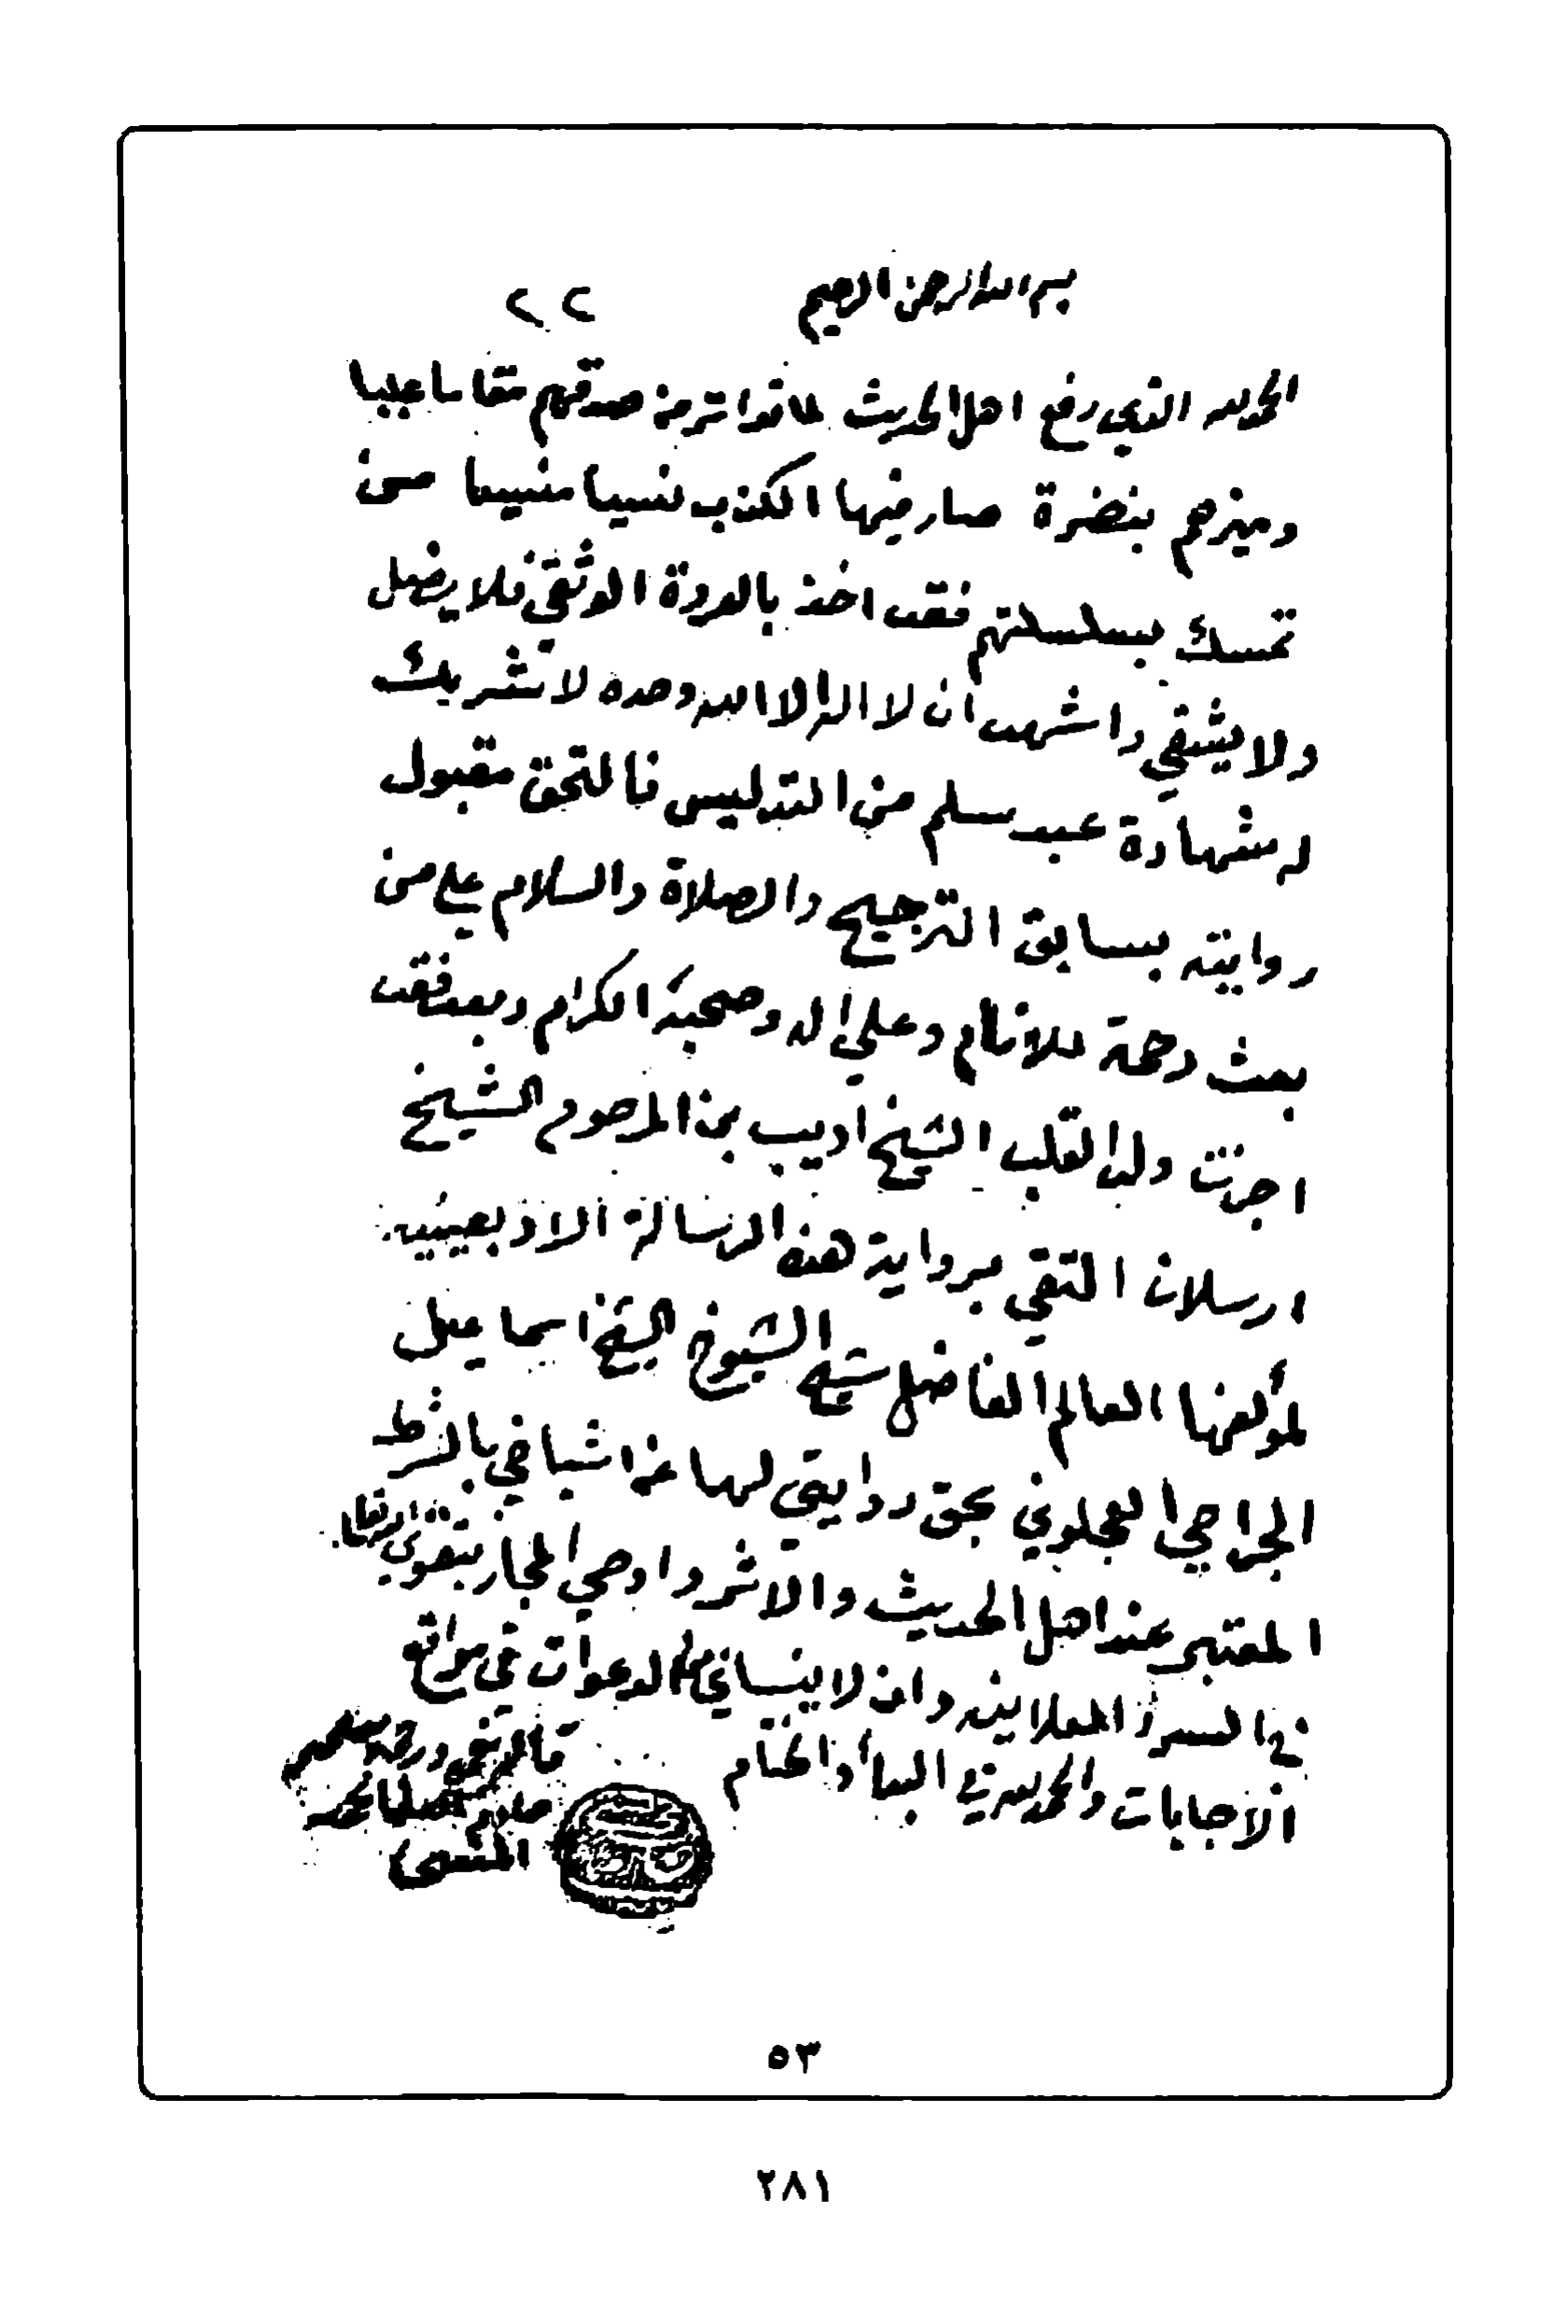 بسم الله الرحمن الرحيم ٢٢
الحمد لله الذي رفع اهل الحديث لما تواتر من صدقهم مقاما عليا
وميزهم بنضرة صار فيها الكذب نسيا منسيا من
تمسك بسلسلتهم فقد اخذ بالعروة الوثقى فلا يضل
ولا يشقى واشهد ان لا اله الا الله وحده لا شريك
له شهادة عبد سلم من التدليس فالتحق مقبول
روايته بسابق الترجيح والصلاة والسلام على من
بعث رحمة للانام وعلى اله وصحبه الكرام وبعد فقد
اجزت ولد القلب الشيخ اديب بن المرحوم الشيخ
ارسلان التقي برواية هذه الرسالة الاربعينيه
لمؤلفها العالم الفاضل شيخ الشيوخ الشيخ اسماعيل
الجراحي العجلوني بحق روايتي لها عن اشياخي بالشرط
المعتبر عند اهل الحديث والاثر واوصي المجاز بتقوى الله تعالى
في السر والعلانيه وان لا ينساني من الدعوات في مواقع
الاجابات والحمد لله في البدأ والختام
قاله بفمه ورقمه بقلمه
المنيني
٥٣
٢٨١